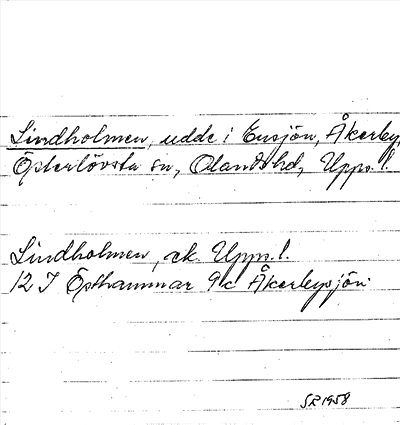 Lindholmen, udde i Ensjön, Åkerby,
Österlövsta sn, Olands hd, Upps. l.
Lindholmen, ek. Upps. l.
12 I Östhammar 9 c Åkerbysjön
SR 1958